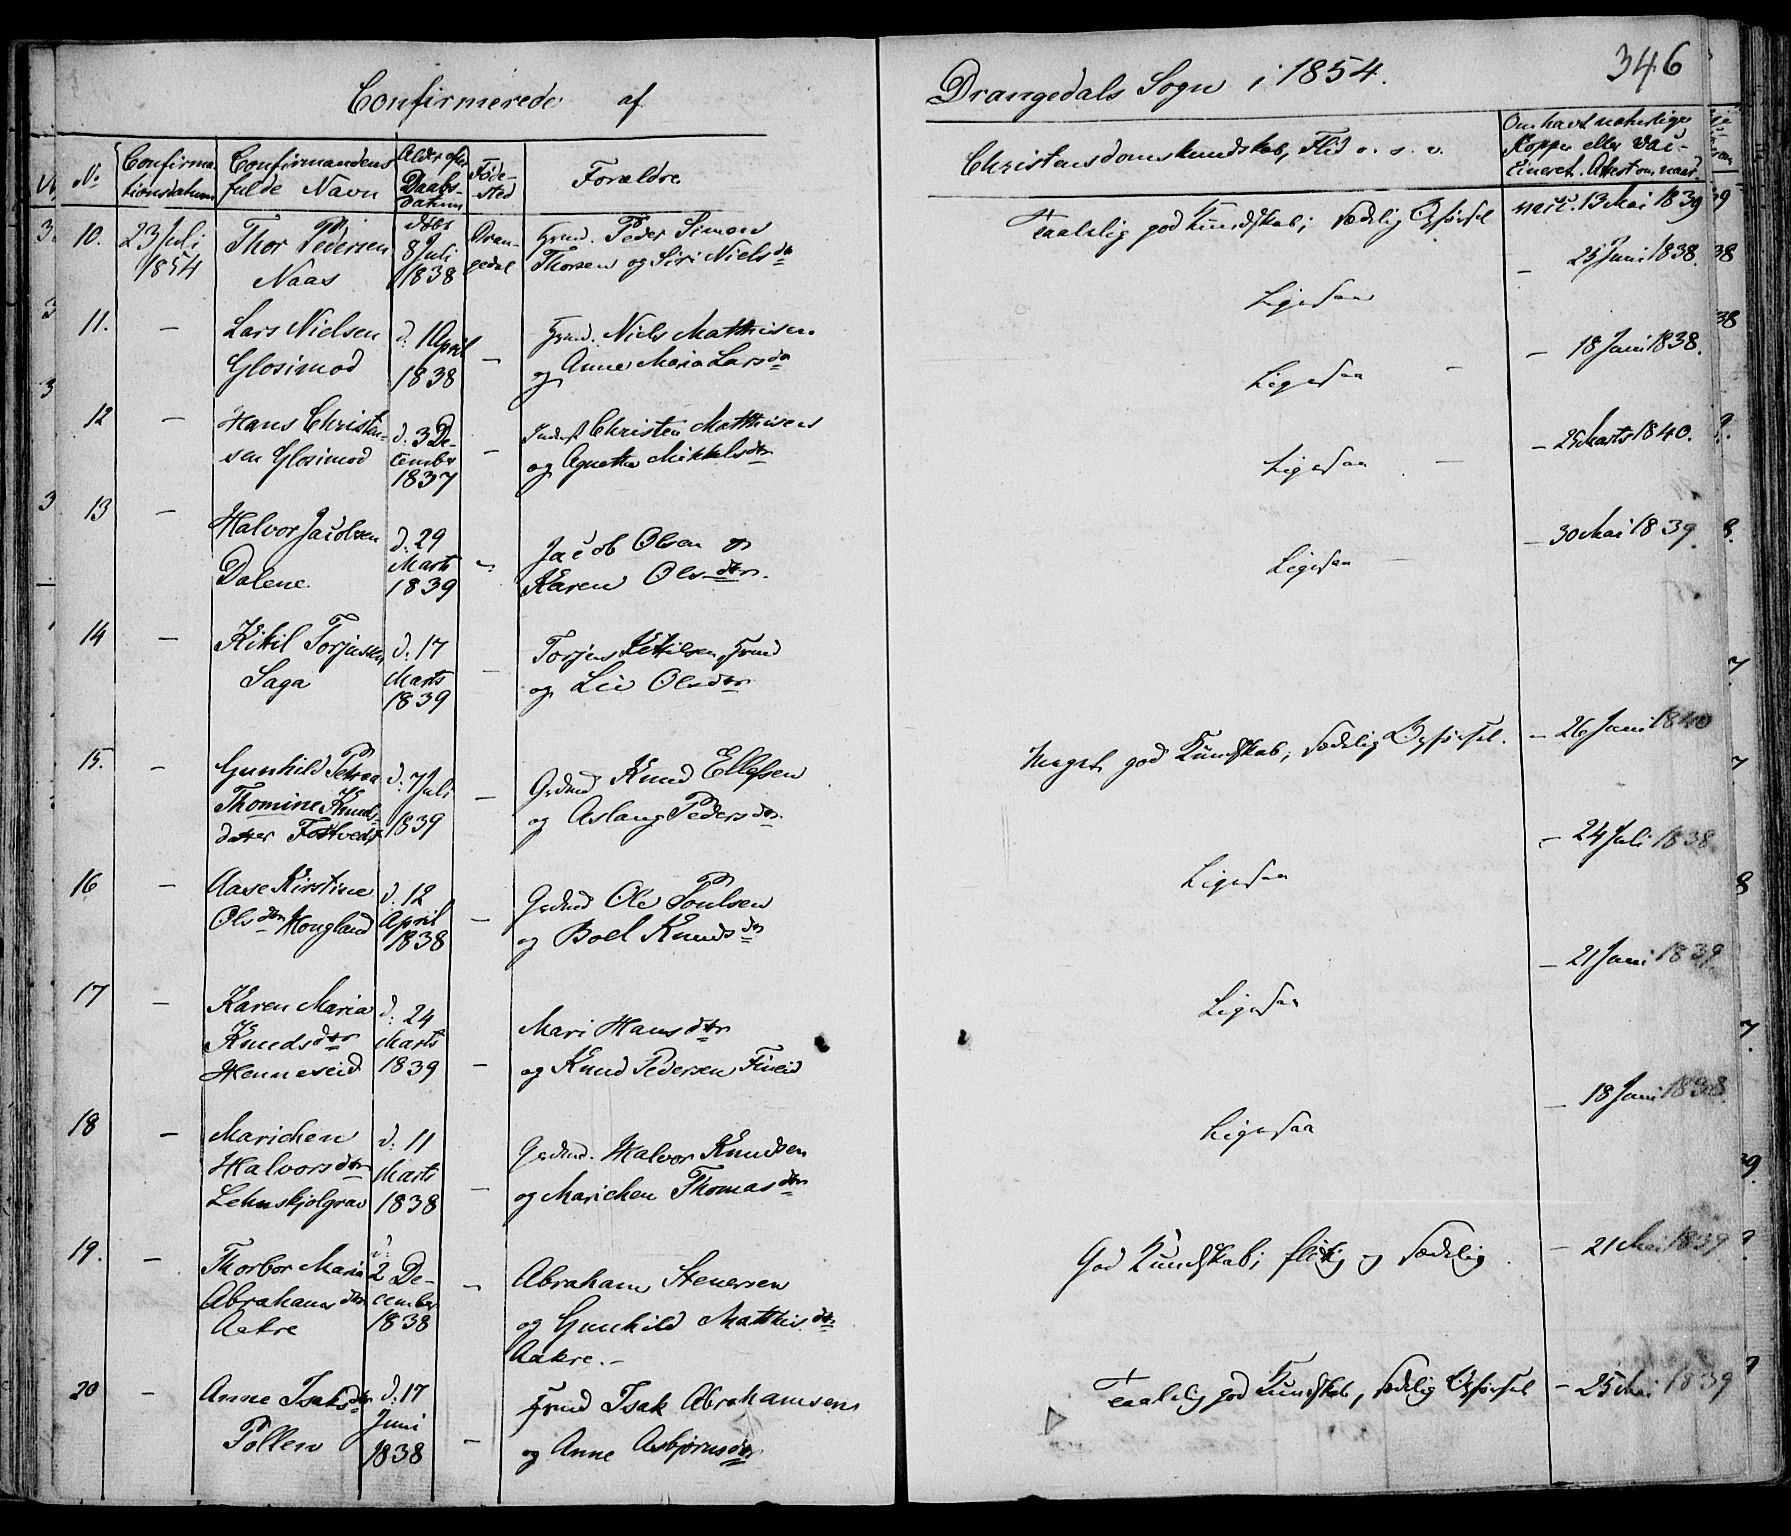 346
Confirmerede af Drangedals Sogn i 1854.
No Confirmationsdatum Confirmandens fulde Navn Alder efter Daabsdatum Fødested Forældre Christendomskundskab, Flid o. s. v. Om havt naturlige Kopper eller Vaccineret. Attest om naar.
10. 23 Juli 1854 Thor Pedersen Naas døbt 8 Juli 1838 Drangedal Grmd. Peder Simon Thorsen og Siri Nielsdtr Taalelig god Kundskab; sædelig Opførsel vacc. 13 Mai 1839
11. — Lars Nielsen Glosimod d. 1 April 1838 — Grmd. Niels Matthisen og Anne Maria Larsdtr Ligesaa — 25 Juni 1838.
12 — Hans Christensen Glosimod d. 3 December 1837 — Inderst Christen Matthisen og Agnethe Mikkelsdtr Ligesaa — 18 Juni 1838.
13 — Halvor Jacobsen Dalene d. 29 Marts 1839 — Jacob Olsen og Karen Olsdtr. Ligesaa — 25 Marts 1840.
14 — Kitil Torjussen Saga d. 17 Marts 1839 — Torjus Kittilsen, Grmd og Liv Olsdtr Ligesaa — 30 Mai 1839.
15. — Gunhild Petrea Thomine Knudsdatter Tostvedt d. 7 Juli 1839 — Grdmd Knud Ellefsen og Aslaug Pedersdtr Meget god Kundskab; sædelig Opførsel. — 26 Juni 1840
16 — Aase Kirstine Olsdtr Hougland d. 12 April 1838 — Grdmd Ole Poulsen og Boel Knudsdtr Ligesaa — 24 Juli 1838.
17 — Karen Maria Knudsdtr Henneseid d. 24 Marts 1839 — Mari Hansdtr og Knud Pedersen Fineid Ligesaa — 21 Juni 1839.
18 — Marichen Halvorsdtr Lehnskjolgrav d. 11 Marts 1838 — Grdmd. Halvor Knudsen og Marichen Thomasdtr Ligesaa — 18 Juni 1838.
19. — Thorbor Maria Abrahamsdtr Aakre d. 2 December 1838 — Abraham Stenersen og Gunhild Matthisdtr Aakre. — God Kundskab; flittig og sædelig. — 21 Mai 1839
20 — Anne Isaksdtr Pollen d. 17 Juni 1838 — Grmd Isak Abrahamsen og Anne Asbjørnsdtr Taalelig god Kundskab, sædelig Opførsel — 25 Mai 1839